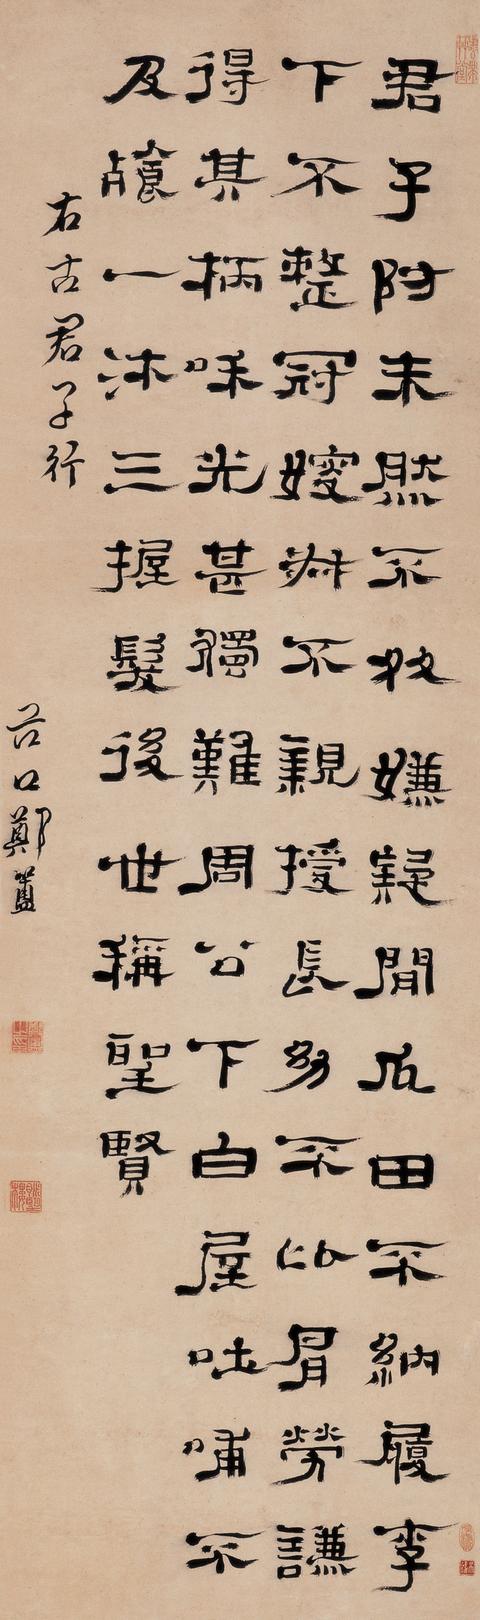 君子防未然不处嫌疑間瓜田不納履李
下不整冠嫂叔不親授長幼不比肩勞謙
得其柄咊光甚獨難周公下白屋吐哺不
及餐一沐三握髮後世稱聖賢
右古君子行
谷口鄭簠